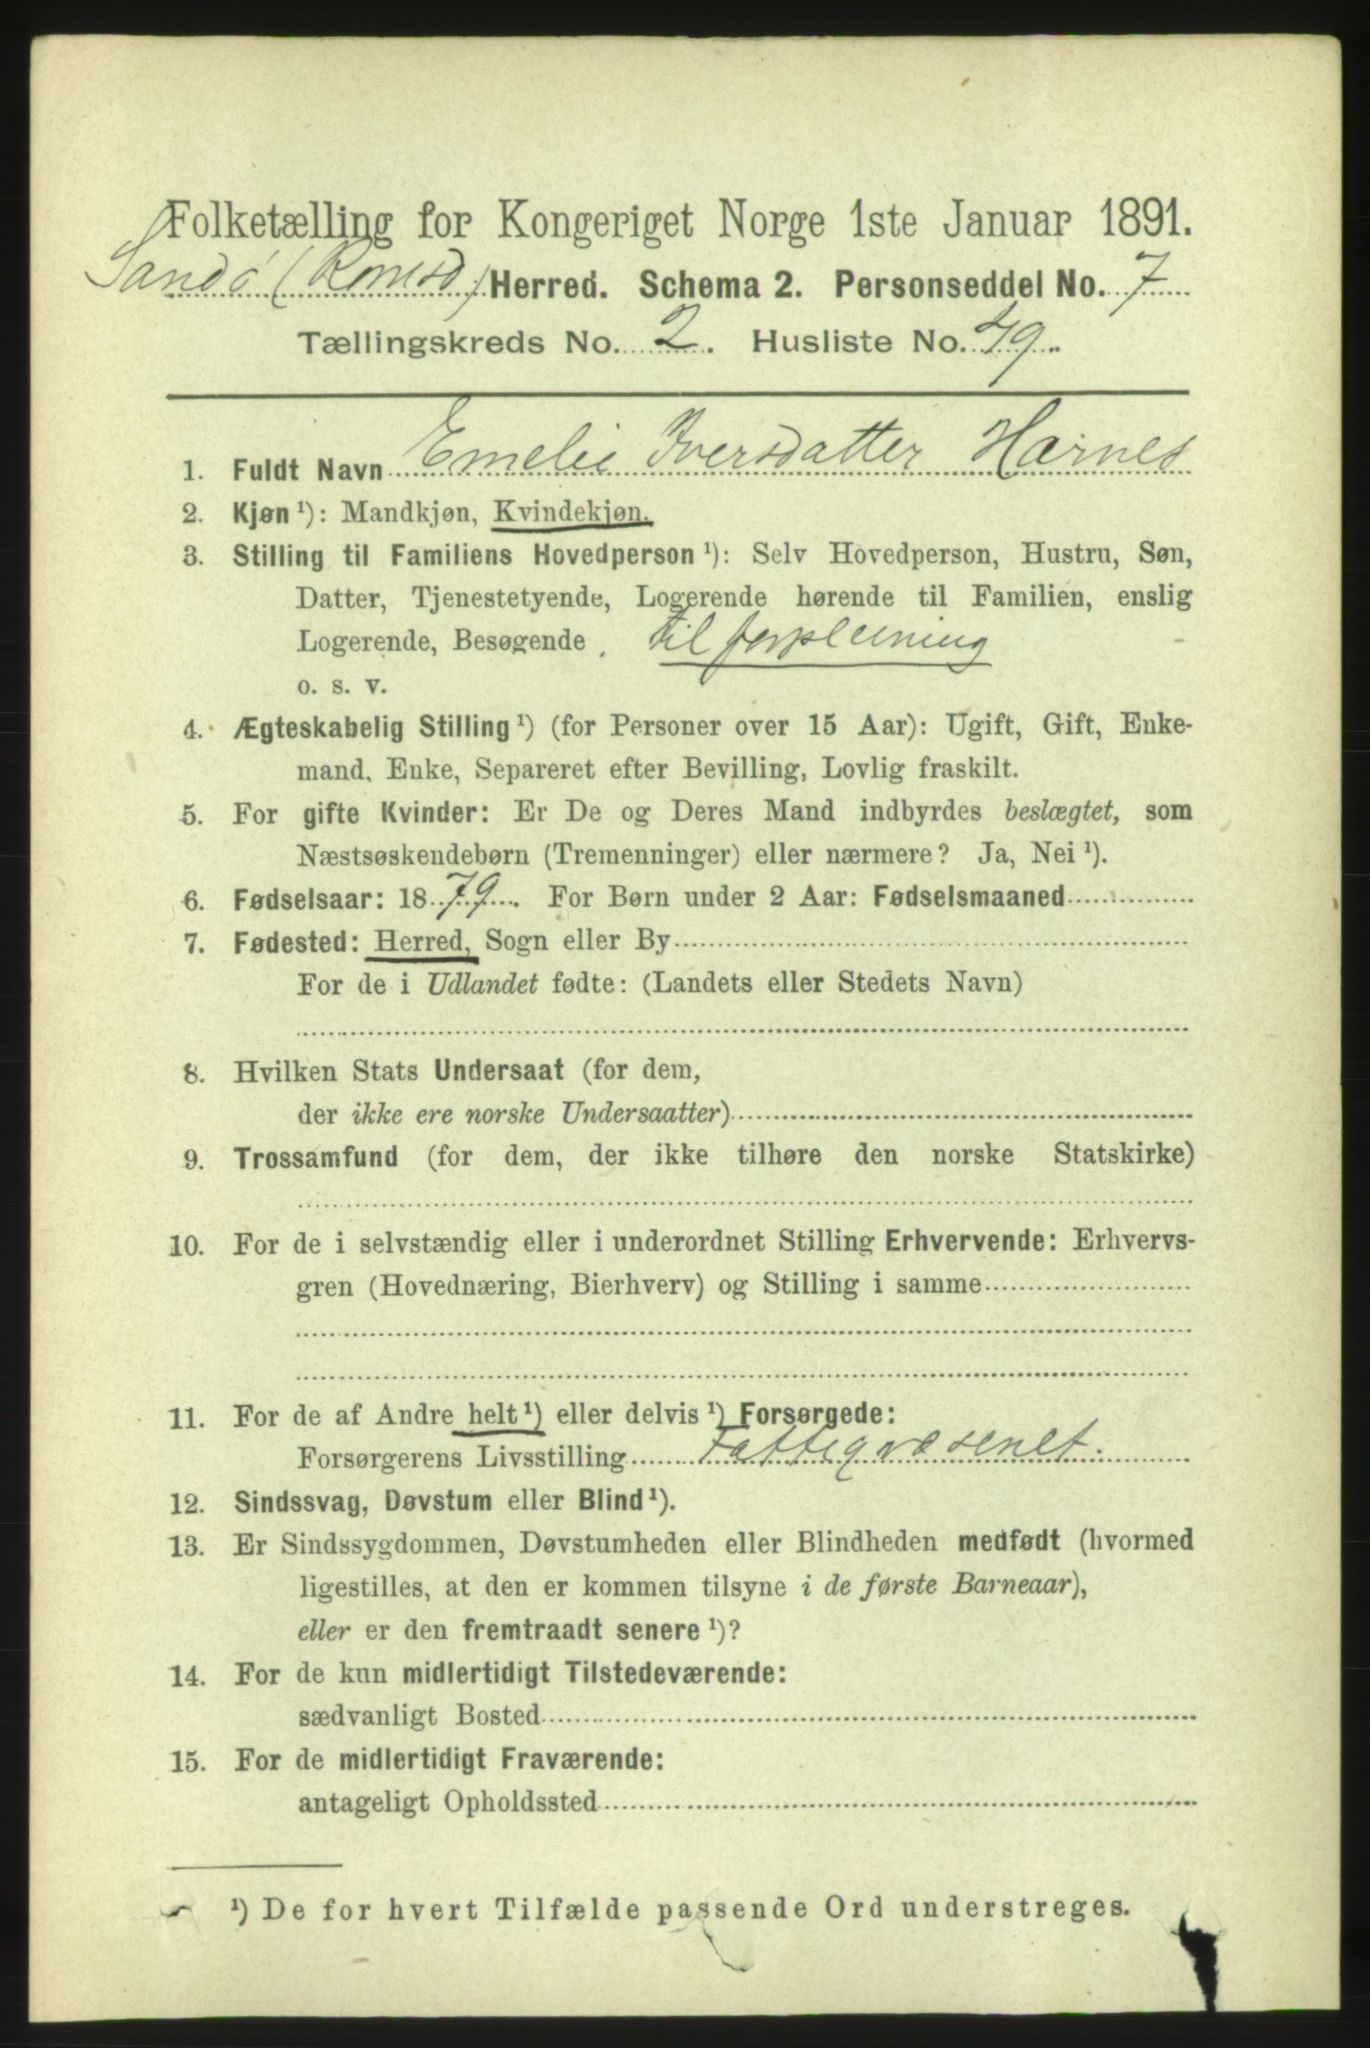 Folketælling for Kongeriget Norge 1ste Januar 1891.
Sandø (Romsd) Herred. Schema 2. Personseddel No. 7
Tællingskreds No. 2. Husliste No. 49.
1. Fuldt Navn Emelie Iversdatter Harnes
2. Kjøn ¹): Mandkjøn, Kvindekjøn.
3. Stilling til Familiens Hovedperson ¹): Selv Hovedperson, Hustru, Søn,
Datter, Tjenestetyende, Logerende hørende til Familien, enslig
Logerende, Besøgende . til forpleining
o. s. v.
4. Ægteskabelig Stilling ¹) (for Personer over 15 Aar): Ugift, Gift, Enke-
mand, Enke, Separeret efter Bevilling, Lovlig fraskilt.
5. For gifte Kvinder: Er De og Deres Mand indbyrdes beslægtet, som
Næstsøskendebørn (Tremenninger) eller nærmere? Ja, Nei ¹).
6. Fødselsaar: 1879. For Børn under 2 Aar: Fødselsmaaned
7. Fødested: Herred, Sogn eller By
For de i Udlandet fødte: (Landets eller Stedets Navn)
8. Hvilken Stats Undersaat (for dem,
der ikke ere norske Undersaatter)
9. Trossamfund (for dem, der ikke tilhøre den norske Statskirke)
10. For de i selvstændig eller i underordnet Stilling Erhvervende: Erhvervs-
gren (Hovednæring, Bierhverv) og Stilling i samme
11. For de af Andre helt ¹) eller delvis ¹) Forsørgede:
Forsørgerens Livsstilling Fattigvæsenet.
12. Sindssvag, Døvstum eller Blind ¹).
13. Er Sindssygdommen, Døvstumheden eller Blindheden medfødt (hvormed
ligestilles, at den er kommen tilsyne i de første Barneaar),
eller er den fremtraadt senere ¹)?
14. For de kun midlertidigt Tilstedeværende:
sædvanligt Bosted
15. For de midlertidigt Fraværende:
antageligt Opholdssted
¹) De for hvert Tilfælde passende Ord understreges.